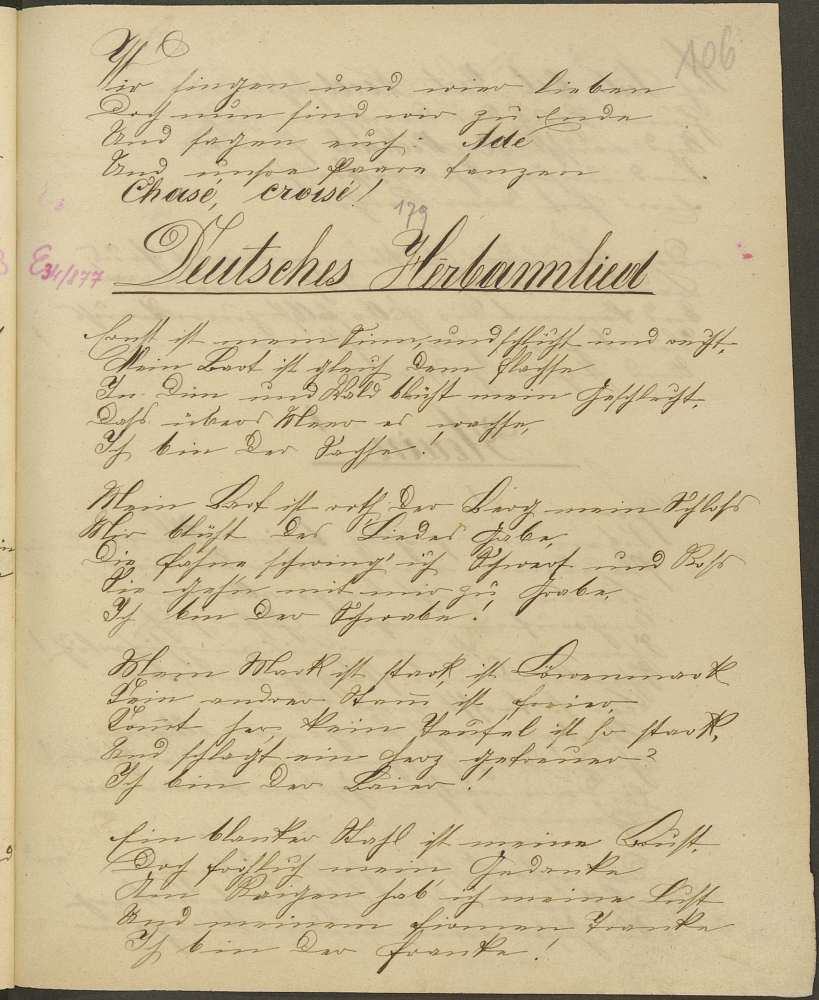 106
Wir singen und wier lieben
Doch nun sind wir zu Ende
Und sagen euch: Ade
Und unsre Paare tanzen
Chasé, croisé!
179
Deutsches Herbannlied
E34/877
Ernst ist mein Sinn, und schlicht und recht,
Mein Bart ist gleich dem Flachse
In Dün und Wald blüht mein Geschlecht,
Dass übers Meer es wachse,
Ich bin der Sachse!
Mein Bart ist roth der Berg mein Schloss
Mir blüht des Liedes Gabe,
Die Fahne schwing' ich Schwert und Ross
Sie gehn mit mir zu Grabe,
Ich bin der Schwabe!
Mein Mark ist stark, ist Löwenmark
Kein andrer Stam̄ ist freier
Kom̄t her, kein Teufel ist so stark,
Und schlägt ein Herz getreuer?
Ich bin der Baier!
Ein blanker Stahl ist meine Brust,
Doch fröhlich mein Gedanke
Am Reigen hab' ich meine Lust
Und meinem firnen Tranke
Ich bin der Franke!